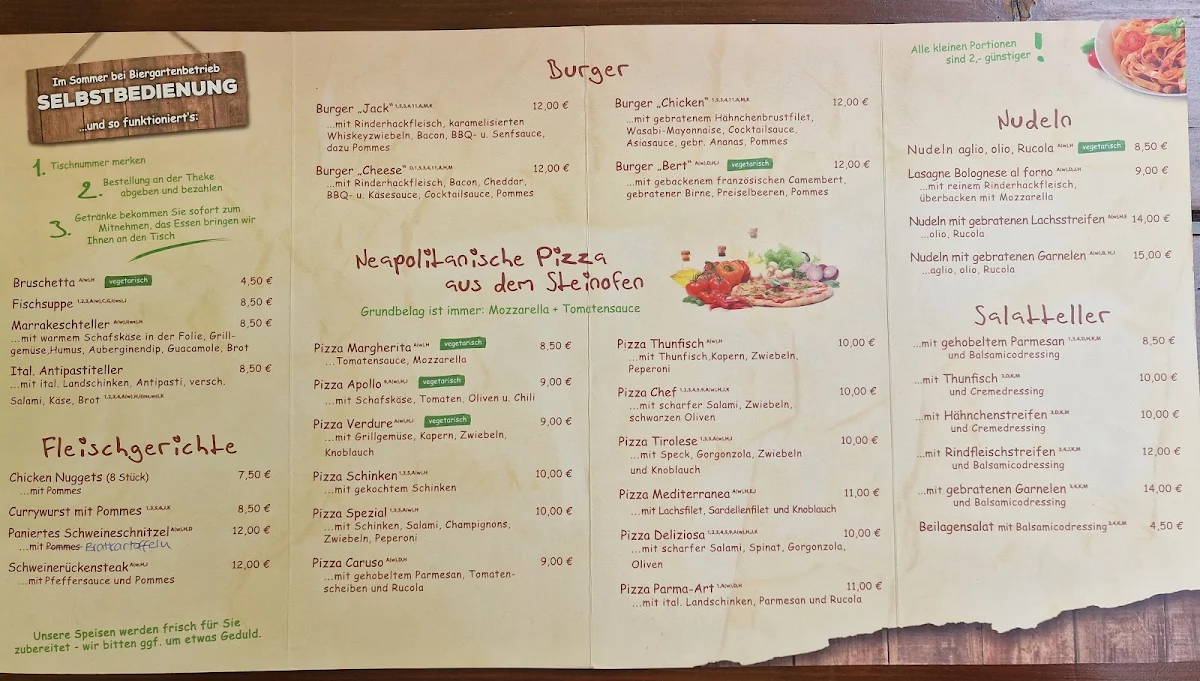 Im Sommer bei Biergartenbetrieb
SELBSTBEDIENUNG
...und so funktioniert's:
1. Tischnummer merken
2. Bestellung an der Theke
abgeben und bezahlen
3. Getränke bekommen Sie sofort zum
Mitnehmen, das Essen bringen wir
Ihnen an den Tisch
Bruschetta vegetarisch 4,50 €
Fischsuppe 8,50 €
Marrakeschteller 8,50 €
...mit warmem Schafskäse in der Folie, Grill-
gemüse,Humus, Auberginendip, Guacamole, Brot
Ital. Antipastiteller 8,50 €
...mit ital. Landschinken, Antipasti, versch.
Salami, Käse, Brot
Fleischgerichte
Chicken Nuggets (8 Stück) 7,50 €
...mit Pommes
Currywurst mit Pommes 8,50 €
Paniertes Schweineschnitzel 12,00 €
...mit Pommes Bratkartoffeln
Schweinerückensteak 12,00 €
...mit Pfeffersauce und Pommes
Unsere Speisen werden frisch für Sie
zubereitet - wir bitten ggf. um etwas Geduld.
Burger
Burger „Jack" 12,00 €
...mit Rinderhackfleisch, karamelisierten
Whiskeyzwiebeln, Bacon, BBQ- u. Senfsauce,
dazu Pommes
Burger „Cheese" 12,00 €
...mit Rinderhackfleisch, Bacon, Cheddar,
BBQ- u. Käsesauce, Cocktailsauce, Pommes
Burger „Chicken" 12,00 €
...mit gebratenem Hähnchenbrustfilet,
Wasabi-Mayonnaise, Cocktailsauce,
Asiasauce, gebr. Ananas, Pommes
Burger „Bert" vegetarisch 12,00 €
...mit gebackenem französischen Camembert,
gebratener Birne, Preiselbeeren, Pommes
Neapolitanische Pizza
aus dem Steinofen
Grundbelag ist immer: Mozzarella + Tomatensauce
Pizza Margherita vegetarisch 8,50 €
...Tomatensauce, Mozzarella
Pizza Apollo vegetarisch 9,00 €
...mit Schafskäse, Tomaten, Oliven u. Chili
Pizza Verdure vegetarisch 9,00 €
...mit Grillgemüse, Kapern, Zwiebeln,
Knoblauch
Pizza Schinken 10,00 €
...mit gekochtem Schinken
Pizza Spezial 10,00 €
...mit Schinken, Salami, Champignons,
Zwiebeln, Peperoni
Pizza Caruso 9,00 €
...mit gehobeltem Parmesan, Tomaten-
scheiben und Rucola
Pizza Thunfisch 10,00 €
...mit Thunfisch,Kapern, Zwiebeln,
Peperoni
Pizza Chef 10,00 €
...mit scharfer Salami, Zwiebeln,
schwarzen Oliven
Pizza Tirolese 10,00 €
...mit Speck, Gorgonzola, Zwiebeln
und Knoblauch
Pizza Mediterranea 11,00 €
...mit Lachsfilet, Sardellenfilet und Knoblauch
Pizza Deliziosa 10,00 €
...mit scharfer Salami, Spinat, Gorgonzola,
Oliven
Pizza Parma-Art 11,00 €
...mit ital. Landschinken, Parmesan und Rucola
Alle kleinen Portionen
sind 2,- günstiger !
Nudeln
Nudeln aglio, olio, Rucola vegetarisch 8,50 €
Lasagne Bolognese al forno 9,00 €
...mit reinem Rinderhackfleisch,
überbacken mit Mozzarella
Nudeln mit gebratenen Lachsstreifen 14,00 €
...olio, Rucola
Nudeln mit gebratenen Garnelen 15,00 €
...aglio, olio, Rucola
Salatteller
...mit gehobeltem Parmesan 8,50 €
und Balsamicodressing
...mit Thunfisch 10,00 €
und Cremedressing
...mit Hähnchenstreifen 10,00 €
und Cremedressing
...mit Rindfleischstreifen 12,00 €
und Balsamicodressing
...mit gebratenen Garnelen 14,00 €
und Balsamicodressing
Beilagensalat mit Balsamicodressing 4,50 €